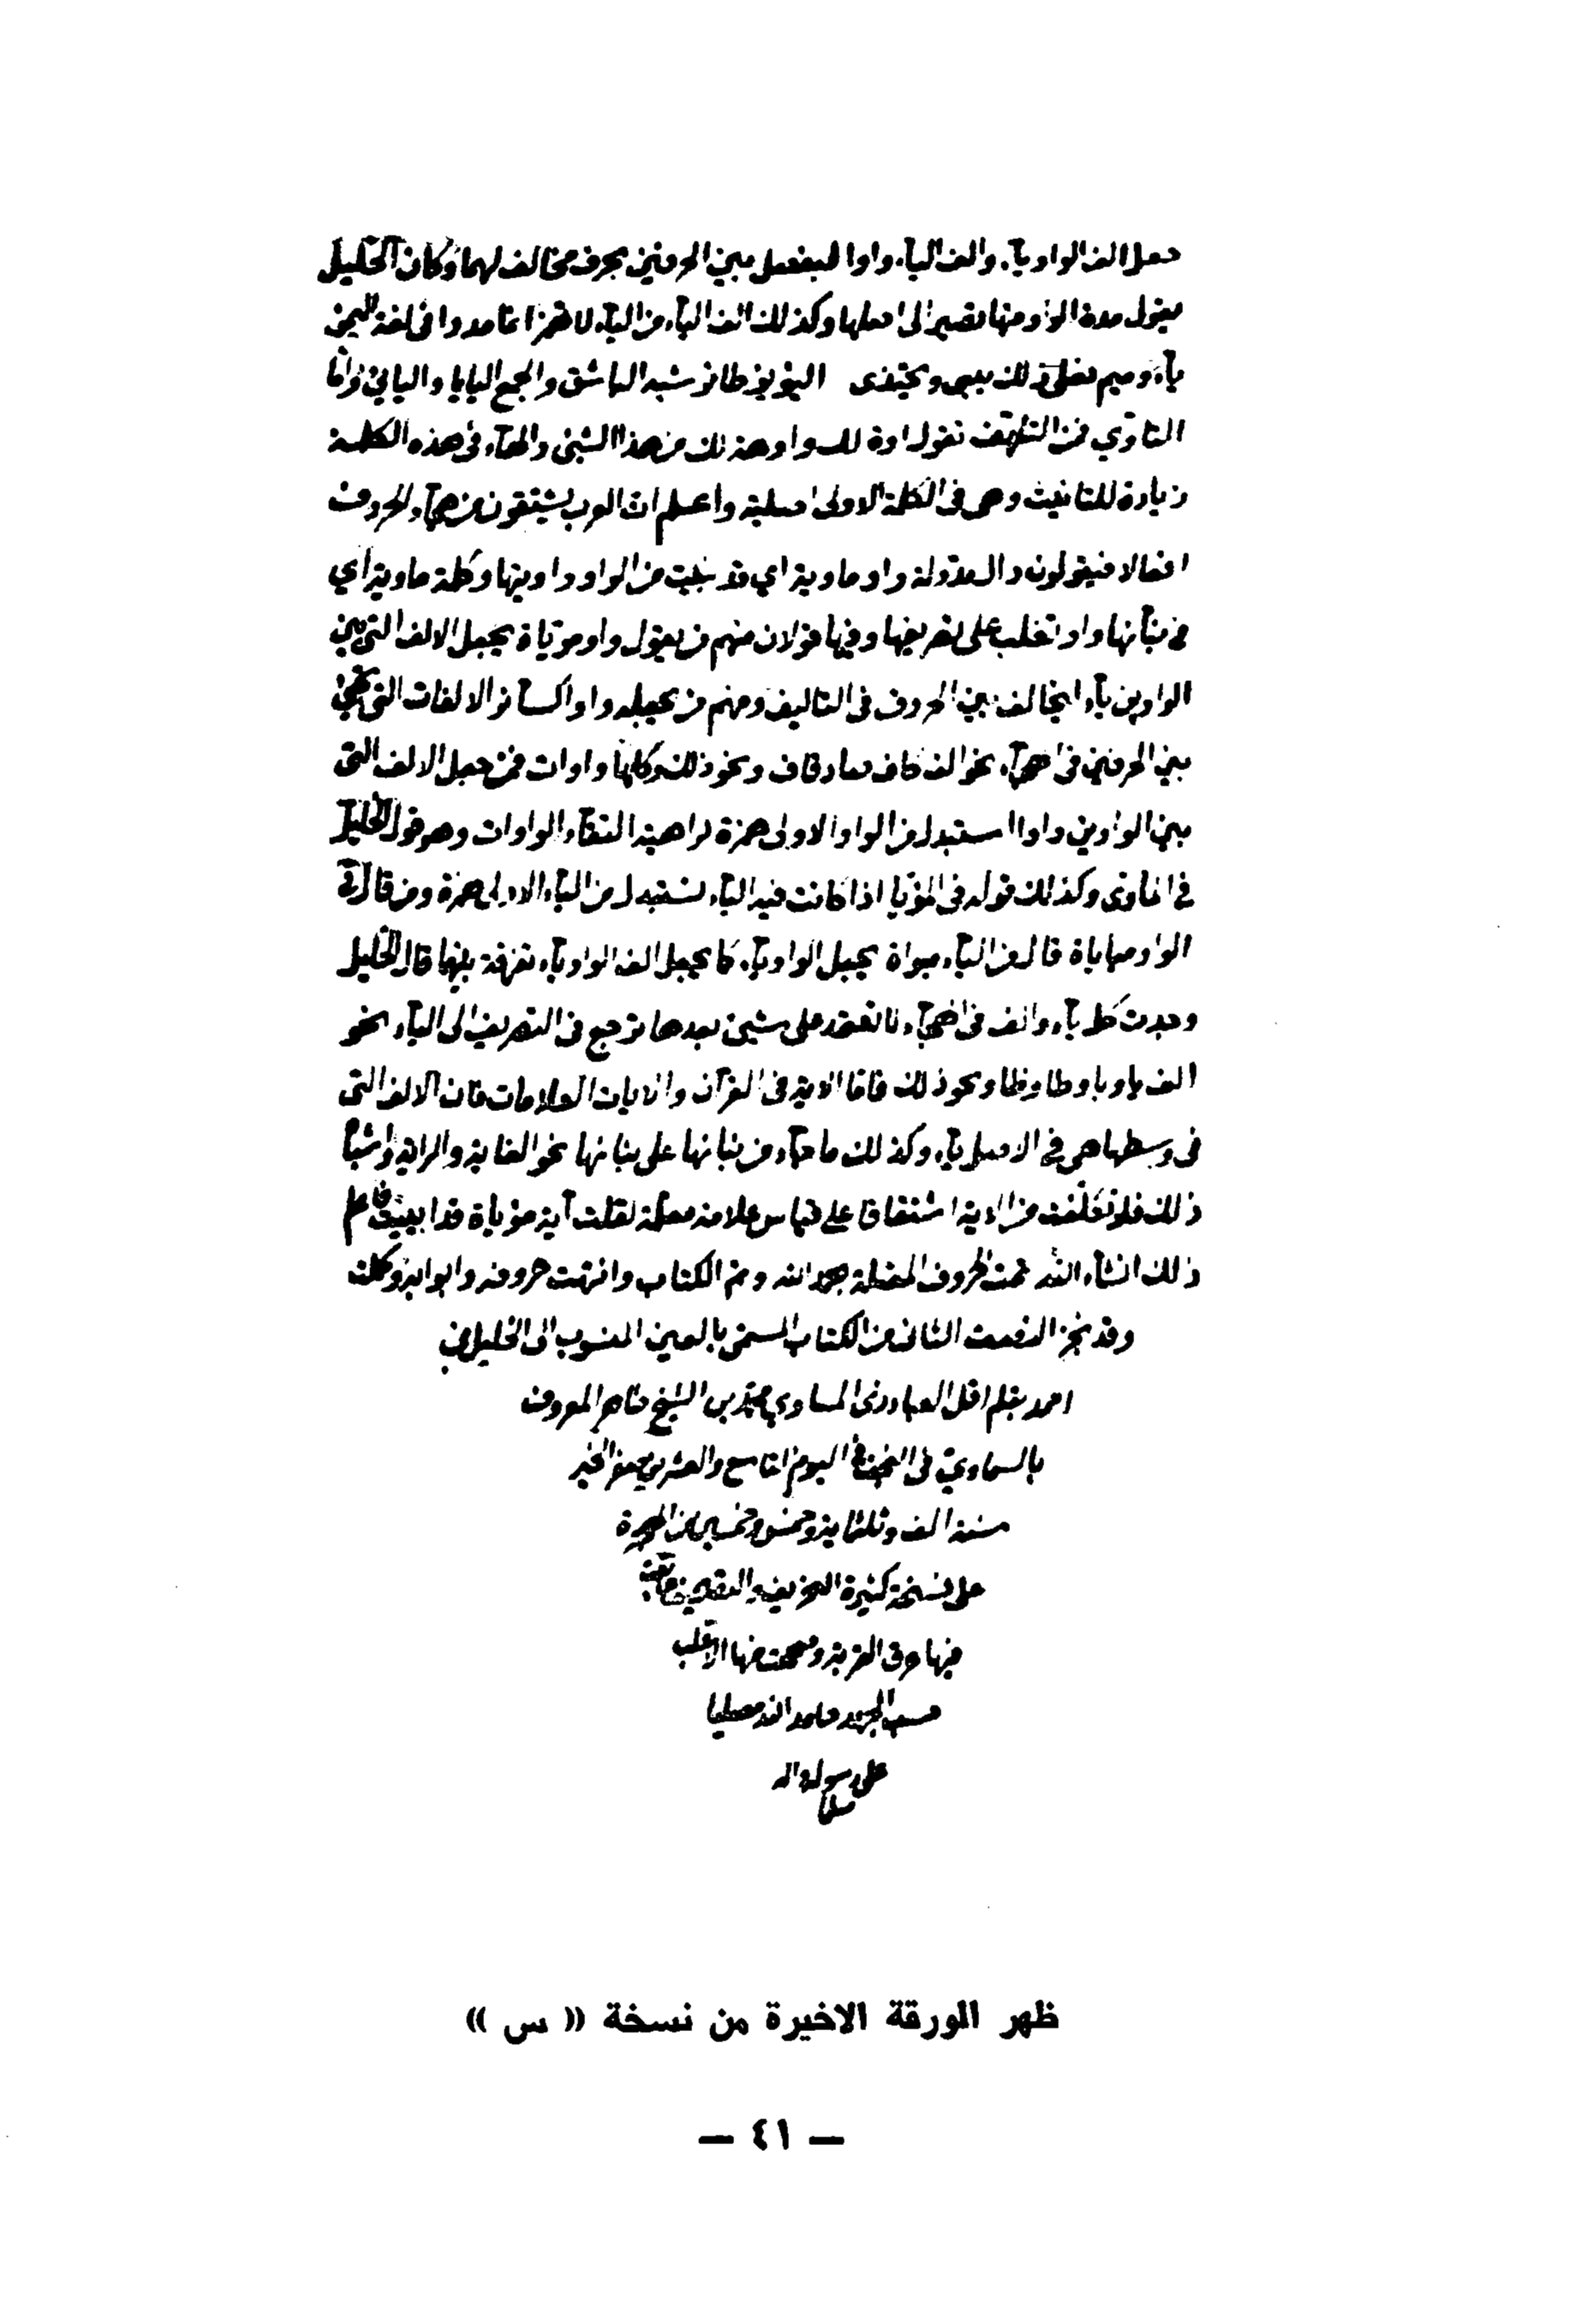 جعل الف الواو ياء، والف الياء واوا ليفصل بين الحرفين بحرف مخالف لهما وكان الخليل
يقول مدة الواو منها تصير الى اصلها وكذلك الف الياء من الياء لا همز انما مدوا في لغة اليمن
ياء وميم فعلى ذلك يبنى ويحتذى اليؤيؤ طائر شبه الباشق والجمع اليايا واليائي واما
التاوّي فمن التلهف تقول اوة لك وهذلك من هذا الشئ والهاء في هذه الكلمة
زيادة للتانيث وهي في الكلمة الاولى اصلية واعلم ان العرب يشتقون من هجاء الحروف
افعالا فيقولون دال مدولة واو ماوية اي قد بنيت من الواو واويتها وكلمة ماوية اي
في بنائها واو تغلب على تصريفها وفيها قولان منهم من يقول واو موياة يجعل الالف التي بين
الواوين ياء ليخالف بين الحروف في التاليف ومنهم من يجعله واوا كسائر الالفات التي تجئ
بين الحرفين في الهجاء نحو الف كاف صاد قاف ونحو ذلك وكلها واوات فمن جعل الالف التي
بين الواوين واوا استبدل من الواو الاولى همزة كراهية التقاء الواوات وهو قول الخليل
في الماوى وكذلك قوله في المؤيا اذا كانت فيه الياء تستبدل من الياء الاولى همزة ومن قال في
الواو مياياة قال من الياء ميواة يجعل الواو ياء كما يجعل الف الواو ياء تفرقة بينهما قال الخليل
وجدت كل ياء والف في الهجاء لا تعتمد على شئ بعدها ترجع في التصريف الى الياء نحو
الف يا وبا وطا وظا ونحو ذلك فاما الاية في القران والايات العلامات فان الالف التي
في وسطها هي في الاصل ياء وكذلك ما جاء من بنائها على بنائها نحو الغاية والراية واشباه
ذلك فلو تكلفت من الاية اشتقاقا على قياس علامة معلمة لقلت آية مؤياة قد ابيت فاعلم
ذلك انشاء الله تمت الحروف المعتلة بحمد الله وتم الكتاب وانتهت حروفه وابوابه وكلت
وقد نجز النصف الثاني من الكتاب المسمى بالعين المنسوب الى الخليل بن
احمد بقلم اقل العباد ذي المساوي محمد بن الشيخ طاهر المعروف
بالسماوي في النجف في اليوم التاسع والعشرين من صفر الخير
سنة الف وثلثماية وخمس وخمسين من الهجرة
على نسخة كثيرة التحريف والتصحيف
فيها عرق القربة وصححت منها الاغلب
حسب الجهد حامدا لله مصليا
على رسوله واله
مسلما
ظهر الورقة الاخيرة من نسخة (( س ))
— ٤١ —